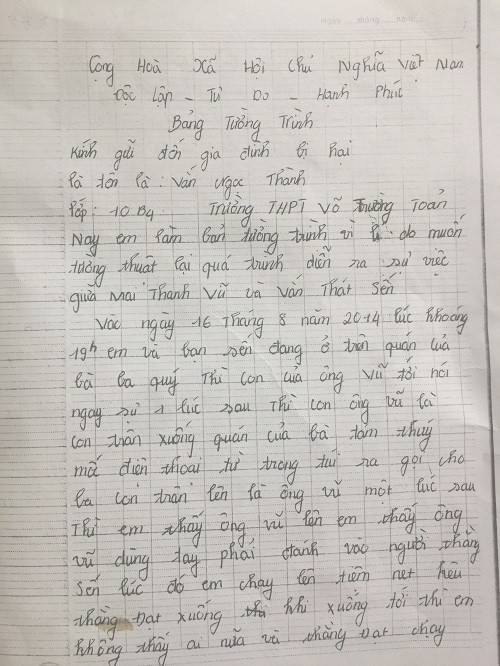 Cộng Hoà Xã Hội Chủ Nghĩa Việt Nam
Độc Lập - Tự Do - Hạnh Phúc
Bảng Tường Trình
Kính gửi đến gia đình bị hại
là tôi là : Văn Ngọc Thành
lớp : 10 B4 Trường THPT Võ Trường Toản
Nay em làm bản tường trình vì lí do muốn
tường thuật lại quá trình diễn ra sự việc
giữa Mai Thanh Vũ và Văn Thát Sến
Vào ngày 16 tháng 8 năm 2014 lúc khoảng
19h em và bạn sến đang ở trên quán của
bà ba quý thì con của ông Vũ tới nói
ngay sự 1 lúc sau thì con ông vũ là
con trân xuống quán của bà tám thuý
mốc điện thoại từ trong túi ra gọi cho
ba con trân lên là ông vũ một lúc sau
thì em thấy ông vũ lên em thấy ông
vũ dùng tay phải đánh vào người thằng
sến lúc đó em chạy lên tiệm net kêu
thằng Đạt xuống khi xuống tới thì em
không thấy ai nữa và thằng Đạt chạy